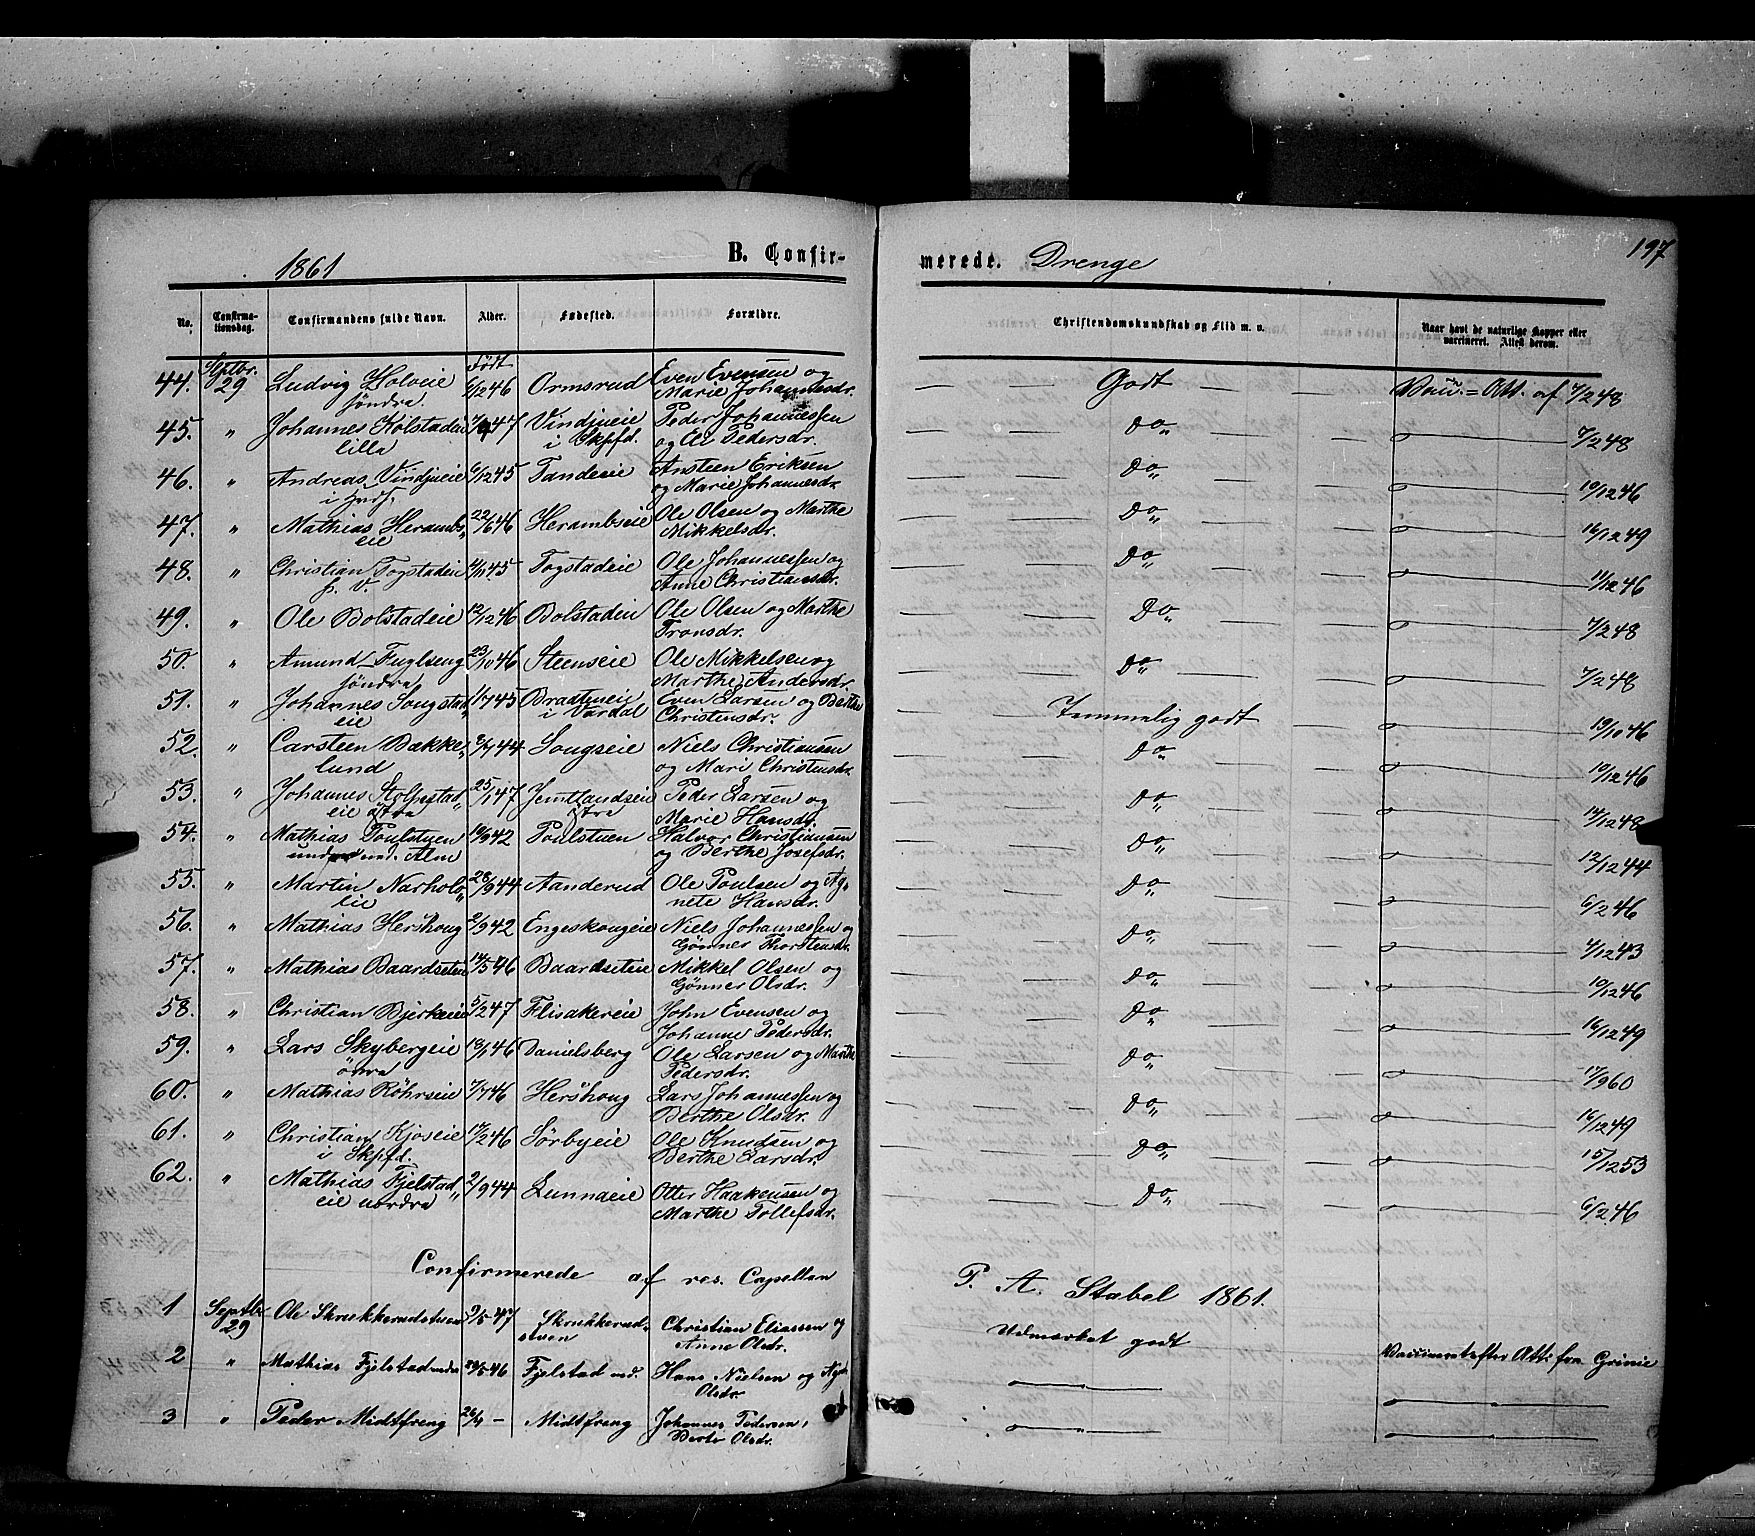 1861 B. Confirmerede. Drenge 197
No. Confirmationsdag. Confirmandens fulde Navn. Alder. Fødested. Forældre. Christendomskundskab og Flid m. v. Naar havt de naturlige Kopper eller vaccineret. Attest derom.
44. Septbr. 29 Ludvig Holveie søndra Født 6/12 46 Ormsrud Even Evensen og Marie Johannesdr. Godt Vacc. Att. af 7/2 48
45. " Johannes Kolstadeie lille 47 Vindjueie i Skpfd. Peder Johannessen og Pedersdr. Do 7/2 48
46. " Andreas Vindjueie i 6/12 45 Tandeeie Ansteen Eriksen og Marie Johannesdr. Do 10/12 46
47. " MathiasHerambseie 22/6 46 Herambseie Ole Olsen og Marthe Mikkelsdr. Do 16/12 49
48. " Christian Togstadeie 45 Togstadeie Ole Johannessen og Anne Christiansdr. Do 11/12 46
49. " Ole Bolstadeie 12/12 46 Bolstadeie Ole Olsen og Marthe Tronsdr. Do 7/2 48
50. " Amund Fuglseng søndra 23/10 46 Steenseie Ole Mikkelsen og Marthe Andersdr. Do 7/2 48
51. " Johannes Sougstadeie 45 Braateneie i Vardal Even Larsen og Berthe Christensdr. Temmelig godt 19/10 46
52. " Carsteen Bakkelund 44 Sougseie Niels Christiansen og Mari Christensdr. Do 10/12 46
53. " Johannes Stolpestadeie østre 25/1 47 Jemtlandseie østre Peder Larsen og Marie Hansdr. Do 14/12 48
54. " Mathias Poulstuen Alm 19/9 42 Poulstuen Halvor Christiansen og Berthe Josefsdr. Do 12/12 44
55. " Martin Narholeie 28/9 44 Aanderud Ole Poulsen og Agnete Hansdr. Do 6/2 46
56. " Mathias Hershoug 2/9 42 Engeskougeie Niels Johannessen og Gønner Thorstensdr. Do 4/12 43
57. " Mathias Baardseteie 14/5 46 Baardseteie Mikkel Olsen og Gønner Olsdr. Do 10/12 46
58. " Christian Bjerkeeie 5/2 47 Flisakereie John Evensen og Johanne Pedersdr. Do 16/12 49
59. " Lars Skybergeie øvra 46 Danielsberg Ole Larsen og Marthe Pedersdr. Do 17/9 60
60. " Mathias Røhrseie 7/7 46 Hershoug Lars Johannessen og Berthe Olsdr. Do 16/12 49
61. " Christian Kjoseie i Skpfd. 17/2 46 Sørbyeie Ole Knudsen og Berthe Larsdr. Do 15/12 53
62. " Mathias Fjelstadeie nordra 2/9 44 Lunndeie Otter Haakensen og Marthe Tollefsdr. Do 6/2 46
Confirmerede af res. Capellan P. A. Stabel 1861.
1 Septbr 29 Ole Skrukkerudstuen 9/5 47 Skrukkerudstuen Christian Eliassen og Anne Olsdr. Udmærket godt Vaccineret efter Att fra Grinie
2 " Mathias Fjelstad 46 Fjelstad ned. Hans Nielsen og Olsdr.
3 " Peder Midtfreng 26/4 - Midtfreng Johannes Pedersen, Berte Olsdr.